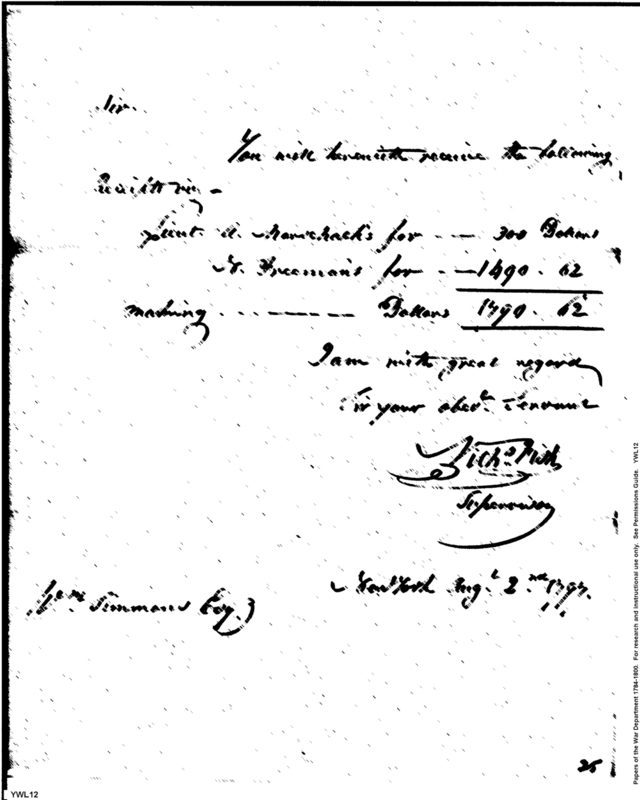 Sir
You will herewith receive the following
Receipts viz
Lieut. A. Marschalk's for — 300 Dollars
Freeman's for — 1490.62
making - - - - - - Dollars 1790.62
I am with great regard
Sir your obed.t Servant
Nich.s Fish
Supervisor
New York Aug.t 2.nd 1797.
Wm Simmons Esq.
25
YWL12
Papers of the War Department 1784-1800. For research and instructional use only. See Permissions Guide. YWL12